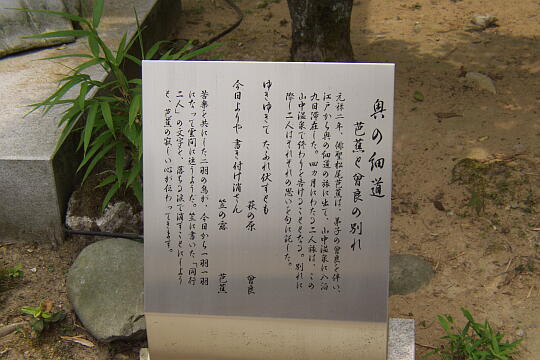 奥の細道
芭蕉と曽良の別れ
元禄二年、俳聖松尾芭蕉は、弟子の曽良を伴い、
江戸から奥の細道の旅に出て、山中温泉に入浴
九日滞在した。四カ月にわたる二人旅は、この
山中温泉で終わりを告げることとなり。別れに
際し二人はそれぞれの思いを句に託した。
ゆきゆきて たふれ伏すとも
萩の原 曽良
今日よりや 書き付け消さん
笠の露 芭蕉
苦楽を共にした二羽の鳥が、今日から一羽一羽
になって雲間に迷うようだ。笠に書いた「同行
二人」の文字を、落ちる涙で消すことにしよう
と、芭蕉の寂しい心が伝わってきます。